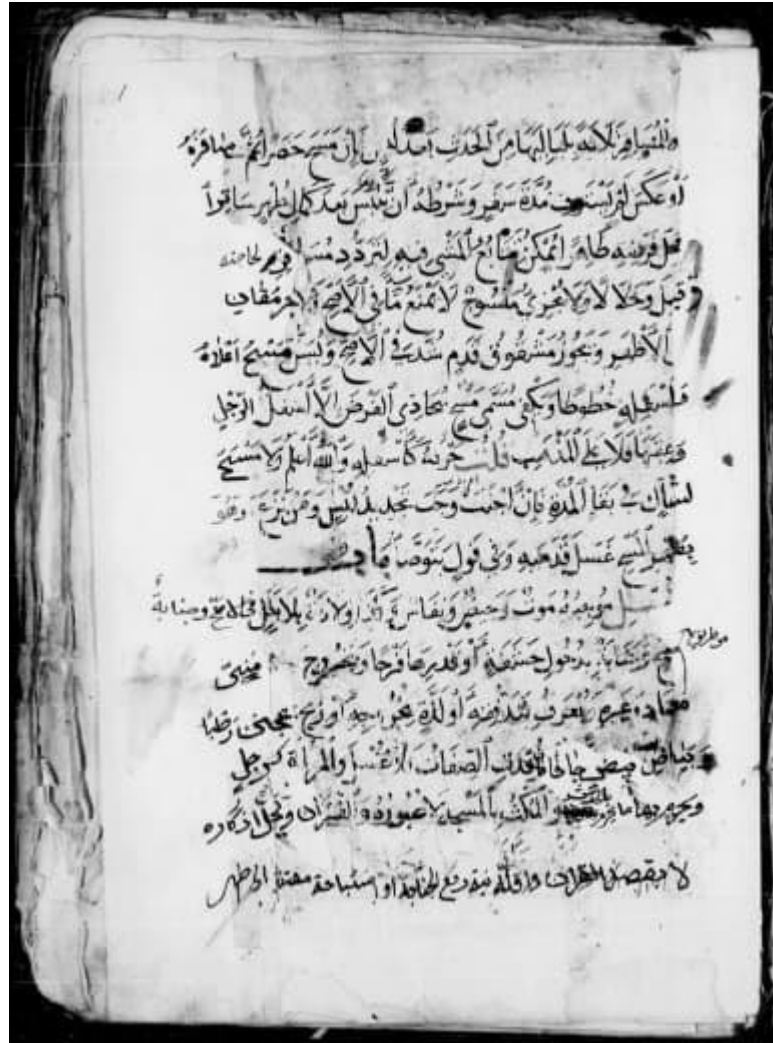 وللمسافر ثلاثة بلياليها من الحدث بعد لبس فإن مسح حضرا ثم سافر
أو عكس لم يستوف مدة سفر وشرطه أن يلبس بعد كمال طهر ساترا
محل فرضه طاهرا يمكن تباع المشي فيه لتردد مسافر لحاجته
قيل وحلالا ولا يجزئ منسوج لا يمنع ماء في الأصح ولا جرموقان
في الأظهر ويجوز مشقوق قدم شد في الأصح ويسن مسح أعلاه
وأسفله خطوطا ويكفي مسمى مسح يحاذي الفرض إلا أسفل الرجل
وعقبها فلا على المذهب قلت حرفه كأسفله والله أعلم ولا مسح
لشاك في بقاء المدة فإن أجنب وجب تجديد لبس ومن نزع وهو
بطهر المسح غسل قدميه وفي قول يتوضأ باب
الغسل موجبه موت وحيض ونفاس وكذا ولادة بلا بلل في الأصح وجنابة
بدخول حشفة أو قدرها فرجا وبخروج مني
من طريقه
معتاد وغيره ويعرف بتدفقه أو لذة بخروجه أو ريح عجين رطبا
وبياض بيض جافا فإن فقدت الصفات فلا غسل والمرأة كرجل
ويحرم بها ما حرم بالحدث والمكث بالمسجد لا عبوره والقرآن وتحل أذكاره
لا بقصد القرآن وأقله نية رفع الجنابة أو استباحة مفتقر إلى طهر